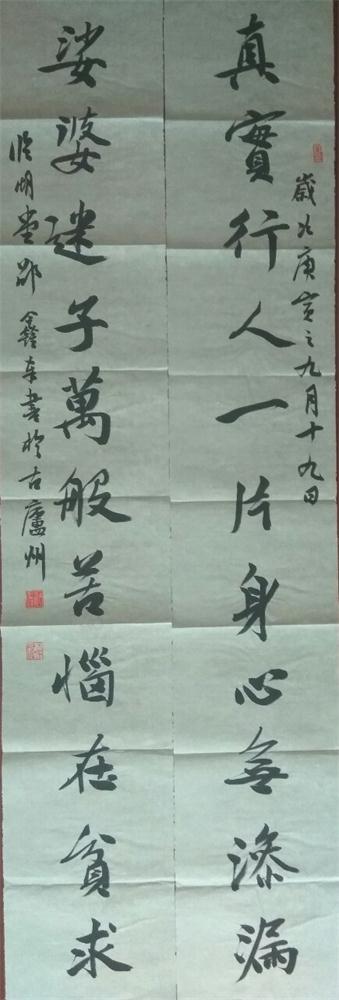 歲次庚寅之九月十九日
真實行人一片身心無滲漏
娑婆迷子萬般苦惱在貪求
明堂邵鑫東書於古廬州